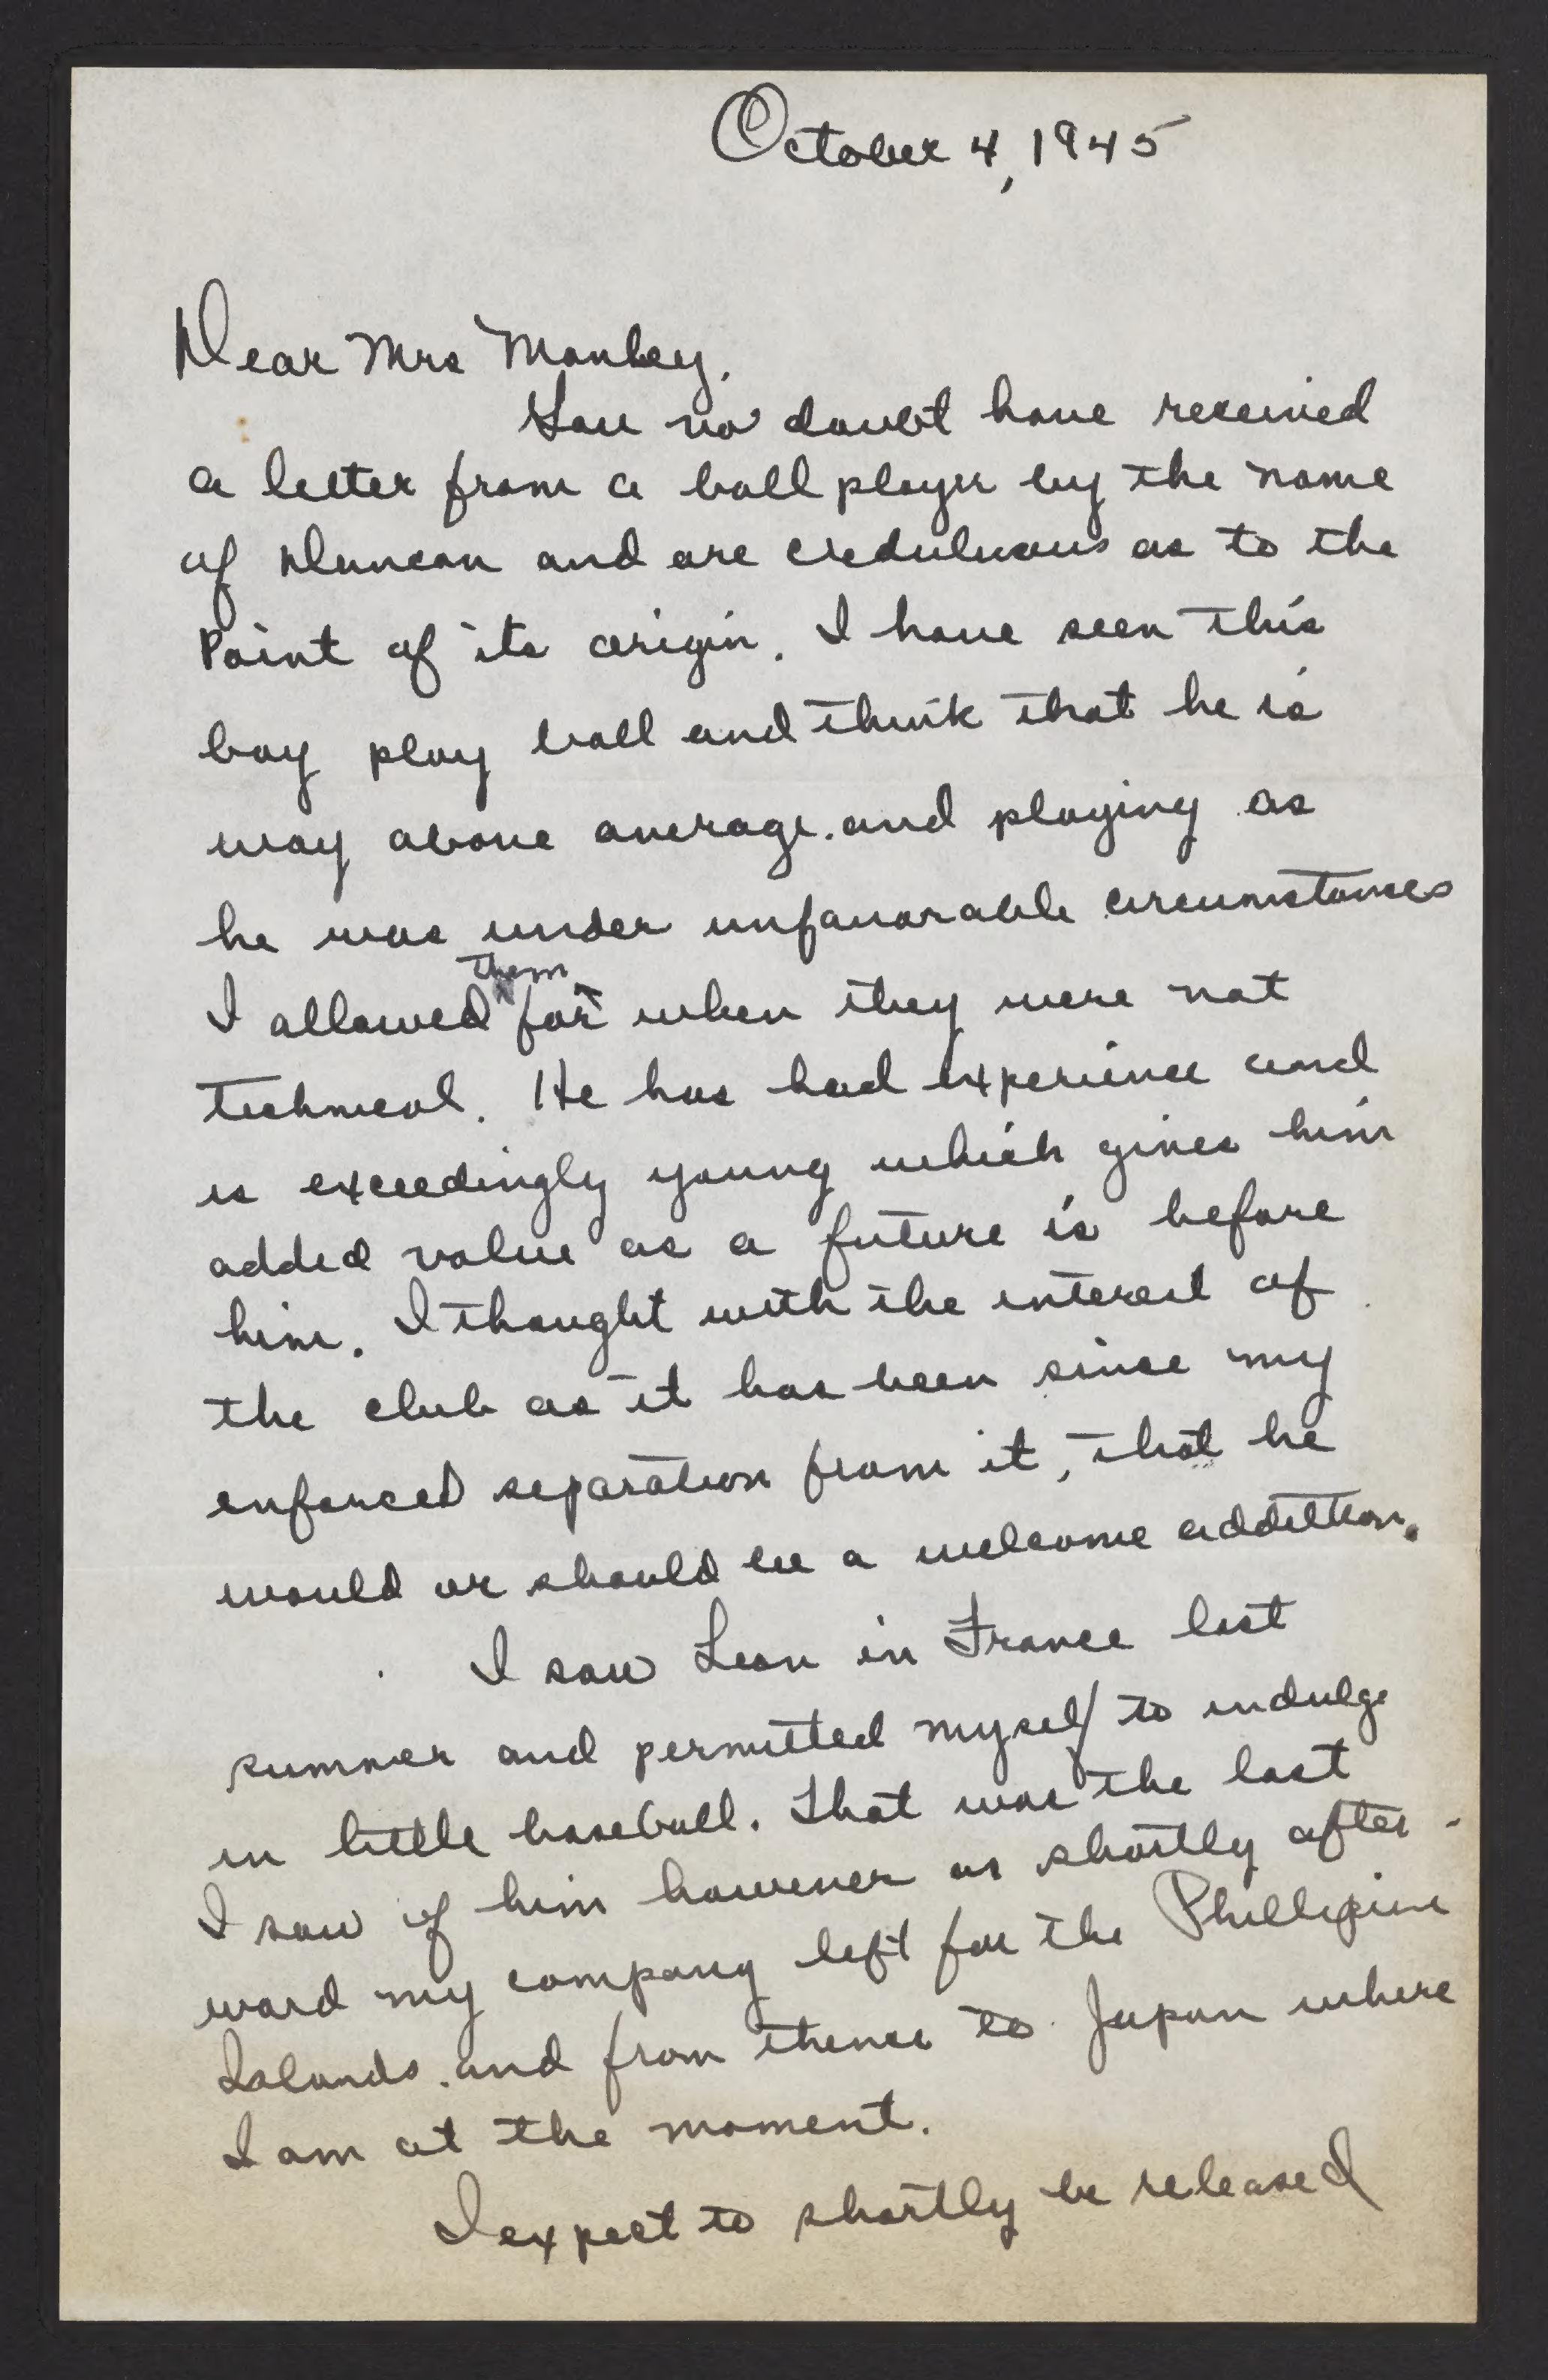 October 4, 1945
Dear Mrs Manley,
You no doubt have received
a letter from a ball player by the name
of Duncan and are creduluous as to the
Point of its origin. I have seen this
boy play ball and think that he is
way above average. and playing as
he was under unfavorable circumstances
them
I allowed for when they were not
technical. He has had experience and
is exceedingly young which gives him
added value as a future is before
him. I thought with the interest of
the club as it has been since my
enforced separation from it, that he
would or should be a welcome addition.
I saw Leon in France last
summer and permitted myself to indulge
in little baseball. That was the last
I saw of him however as shortly after-
ward my company left for the Phillipine
Islands. and from thence to Japan where
I am at the moment.
I expect to shortly be released